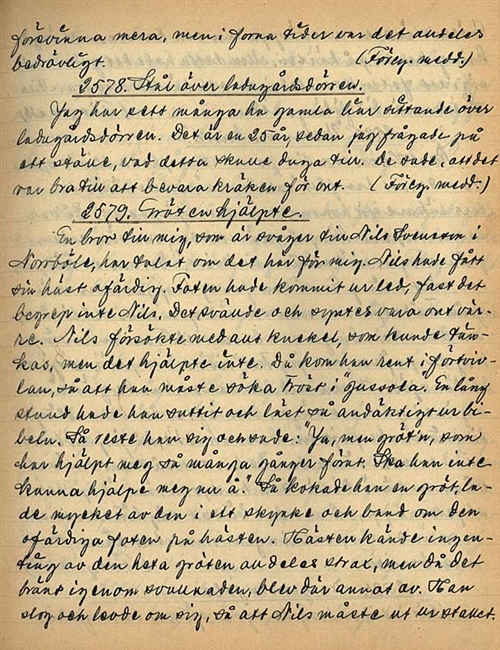 försvinna mera, men i forna tider var det andeles
bedrövligt. (Föreg. medd.)
2578. Stål över ladugårdsdörren.
Jag har sett många ha gamla liar sittande över
ladugårdsdörren. Det är en 25 år, sedan jag frågade på
ett ställe, vad detta skulle duga till. De sade, att det
var bra till att bevara kräken för ont. (Föreg. medd.)
2579. Gröten hjälpte.
En bror till mig, som är svåger till Nils Svensson i
Norrböle, har talat om det här för mig. Nils hade fått
sin häst ofärdig. Foten hade kommit ur led, fast det
begrep inte Nils. Det svällde och syntes vara ont vär-
re. Nils försökte med allt knekel, som kunde tän-
kas, men det hjälpte inte. Då kom han rent i förtviv-
lan, så att han måste söka tröst i gussola. En lång
stund hade han suttit och läst så andäktigt ur bi-
beln. Så reste han sig och sade: "Ja, men gröt'n, som
har hjälpt meg så många gånger förut. Ska han inte
kunna hjälpe meg nu å." Så kokade han en gröt, la-
de mycket av den i ett skynke och band om den
ofärdiga foten på hästen. Hästen kände ingen-
ting av den heta gröten alldeles strax, men då det
bränt igenom svullnaden, blev där annat av. Han
slog och levde om sig, så att Nils måste ut ur stallet.